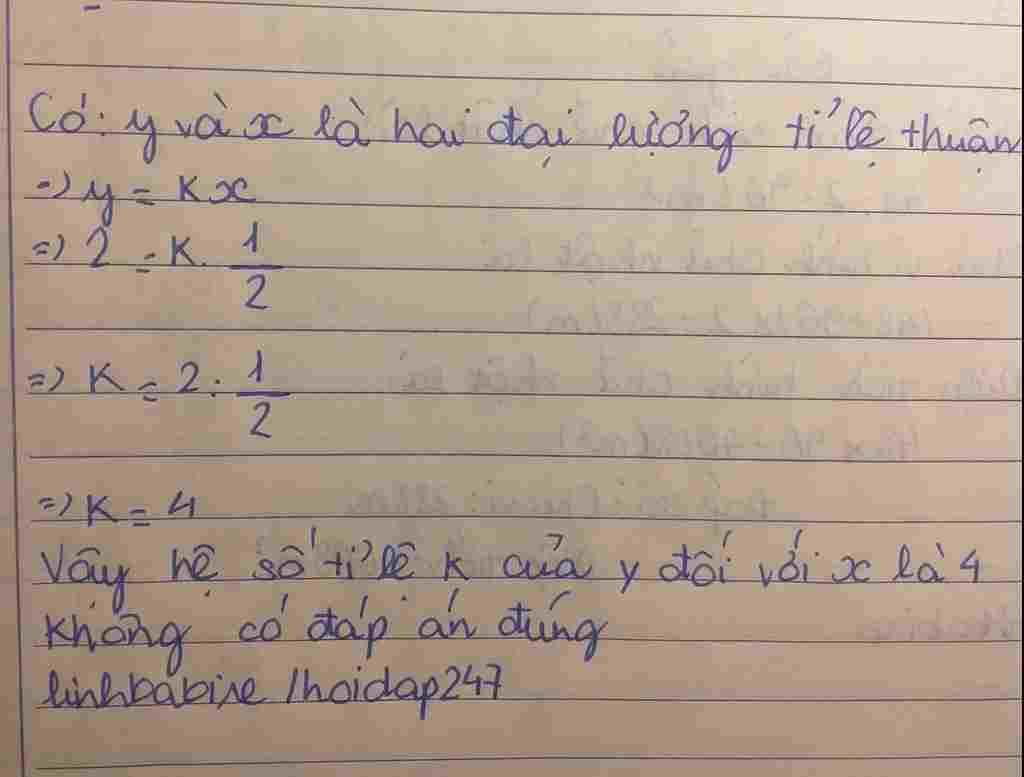 Có: y và x là hai đại lượng tỉ lệ thuận
=> y = Kx
=> 2 = K. 1/2
=> K = 2 : 1/2
=> K = 4
Vậy hệ số tỉ lệ K của y đối với x là 4
Không có đáp án đúng
linhbabie /hoidap247